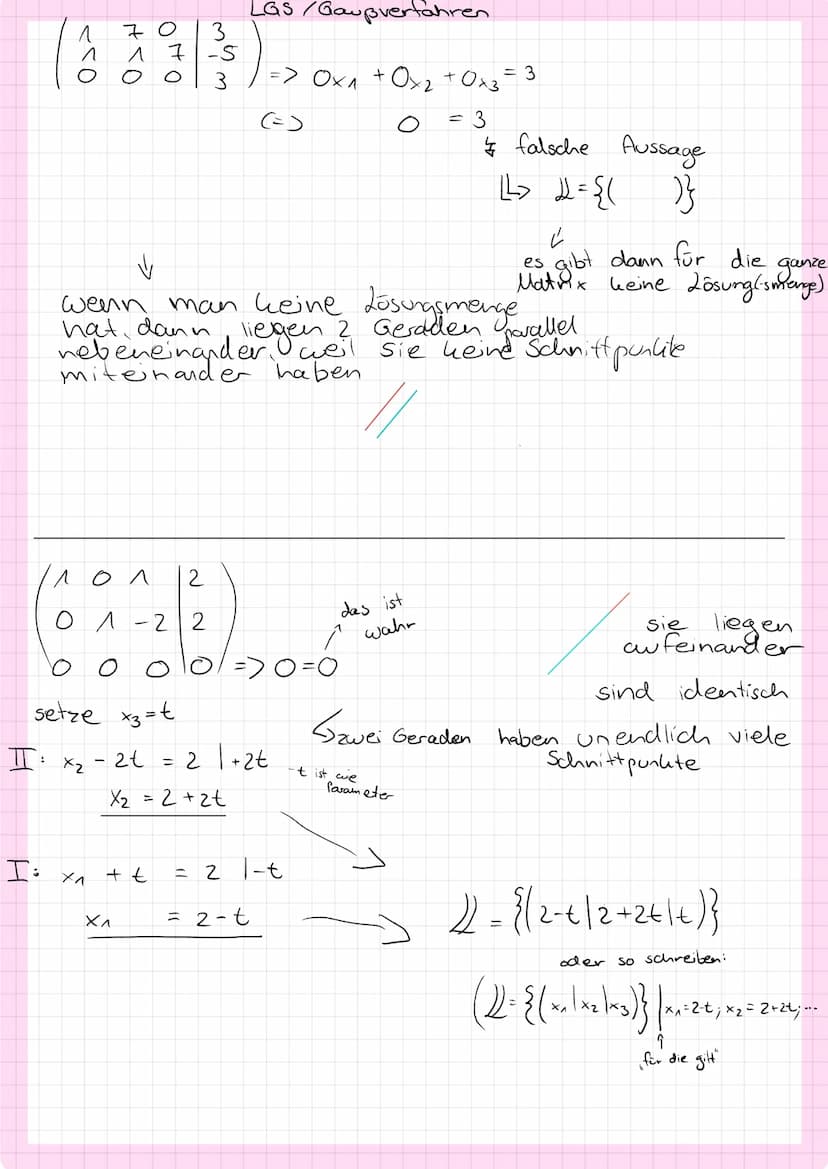 LGS / Gaußverfahren
( 1 7 0 | 3 )
( 1 1 7 | -5 )
( 0 0 0 | 3 ) => 0x₁ + 0x₂ + 0x₃ = 3
(=) 0 = 3
↯ falsche Aussage
↳ 𝕃 = {( )}
es gibt dann für die ganze
Matrix keine Lösung(smenge)
wenn man keine Lösungsmenge
hat, dann liegen 2 Geraden parallel
nebeneinander, weil sie keine Schnittpunkte
miteinander haben
( 1 0 1 | 2 )
( 0 1 -2 | 2 )
( 0 0 0 | 0 ) => 0=0
das ist
wahr
sie liegen
aufeinander
sind identisch
setze x₃=t
↳ zwei Geraden haben unendlich viele
Schnittpunkte
II: x₂ - 2t = 2 | +2t
x₂ = 2 + 2t
-t ist wie
Parameter
I: x₁ + t = 2 | -t
x₁ = 2 - t
𝕃 = {(2-t|2+2t|t)}
oder so schreiben:
(𝕃 = {(x₁|x₂|x₃)} | x₁=2-t; x₂=2+2t; ...
↑
„für die gilt"